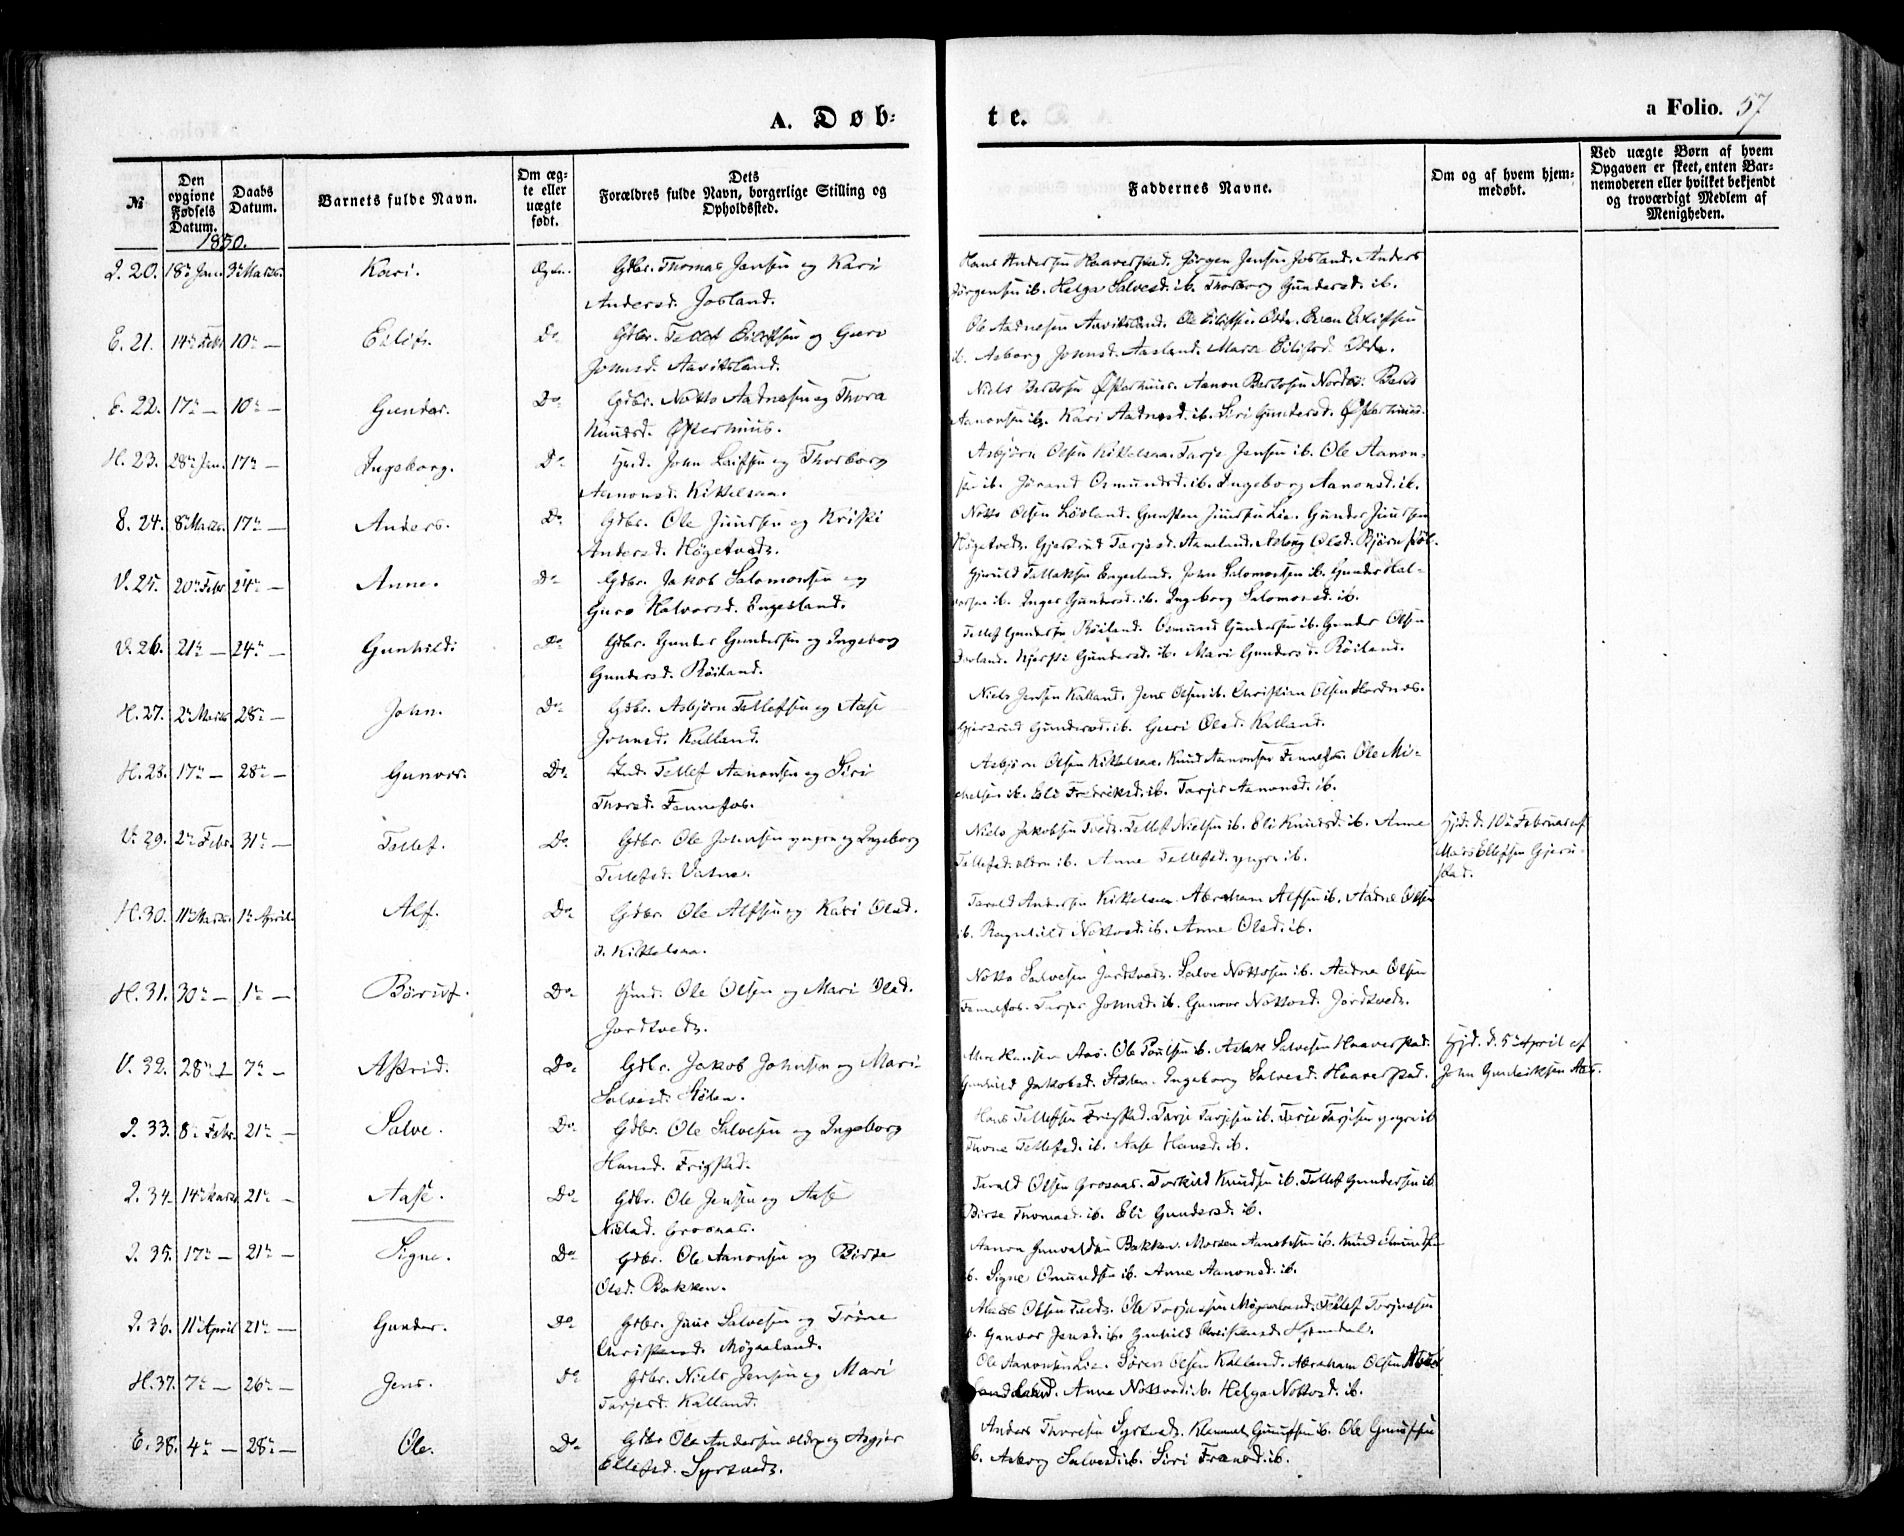 A. Døb-
te.
a Folio. 57
№
Den opgivne Fødsels Datum.
Daabs Datum.
Barnets fulde Navn.
Om ægte eller uægte født.
Dets Forældres fulde Navn, borgerlige Stilling og Opholdssted.
Faddernes Navne.
Om og af hvem hjemmedøbt.
Ved uægte Børn af hvem Opgaven er skeet, enten Barnemoderen eller hvilket bekjendt og troværdigt Medlem af Menigheden.
1850.
20. 18de Jan. 3de Marts. Kari. Ægte. Gdbr. Thomas Jensen og Kari
Andersd. Josland.
Hans Andersen Haaverstad. Jørgen Jensen Josland. Anders
Jørgensen ib. Helga Salvesd. ib. Thorborg Gundersd. ib.
E. 21. 14de Febr. 10de — Eilif. Do Gdbr. Tellef Eilifsen og Guro
Jonsd. Aavitsland.
Ole Aadnesen Aavitsland. Ole Eilifsen Odde. Even Eilifsen
ib. Asborg Jonsd. Aasland. Mari Eilifsd. Odde.
E. 22. 17de — 10de — Gunder. Do Gdbr. Notto Aadnesen og Thora
Knudsd. Østerhuus.
Niels Østerhuus. Aanon
Aanonsen ib. Kari Aadnesd. ib. Siri Gundersd. Østerhuus.
H. 23. 28de Jan. 17de — Ingeborg. Do Huusmd. John Leifsen og Thorborg
Aanonsd. Kittelsaa.
Asbjørn Olsen Kittelsaa. Tarje Jensen ib. Ole Aanon-
sen ib. Jorand Osmundsd. ib. Ingeborg Aanonsd. ib.
24. 8de Marts. 17de — Anders. Do Gdbr. Ole Juursen og Kristi
Andersd. Høgetvedt.
Notto Olsen Løvland. Gunsten Juursen Lie. Gunder Juursen
Høgetvedt. Gjertrud Tarjesd. Aaneland. Asborg Olsd.
V. 25. 20de Febr. 24de — Anne. Do Gdbr. Jakob Salomonsen og
Guro Halvorsd. Engesland.
Gjeruld Tellefsen Engesland. John Salomonsen ib. Gunder Hal-
vorsen ib. Inger Gundersd. ib. Ingeborg Salomonsd. ib.
V. 26. 21de — 24de — Gunhild. Do Gdbr. Gunder Gundersen og Ingeborg
Gundersd. Røiland.
Tellef Gundersen Røiland. Osmund Gundersen ib. Gunder Olsen
Kjersti Gundersd. ib. Mari Gundersd. Røiland.
H. 27. 2de Marts 28de — John. Do Gdbr. Asbjørn Tellefsen og Aase
Jonsd. Kalland.
Niels Jensen Kalland. Jens Olsen ib. Christian Olsen Hordnæs.
Gjertrud Gundersd. ib. Guri Olsd. Kalland.
H. 28. 17de — 28de — Gunvor. Do Tellef Aanonsen og Siri
Thorsd. Fennefos.
Asbjørn Olsen Kittelsaa. Knud Aanonsen Fennefos. Ole Mi-
chelsen ib. Eli Fredriksd. ib. Tarjer Aanonsd. ib.
V. 29. 2de Febr. 31te — Tellef. Do Gdbr. Ole Johnsen yngre og Ingeborg
Tellefsd. Vatne.
Niels Jakobsen Tvedt. Tellef Nielsen ib. Eli Knudsd. ib. Anne
Tellefsd. ældre ib. Anne Tellefsd. yngre ib.
Hjd. d. 10de Februar af
Mads Ellefsen Gjeru-
stad.
H. 30. 11te Marts. 1ste April Alf. Do Gdbr. Ole Alfsen og Kari Olsd.
Kittelsaa.
Tarald Andersen Kittelsaa. Abraham Alfsen ib. Aadne Olsen
ib. Ragnhild Nottosd. ib. Anne Olsd. ib.
H. 31. 30te — 1ste — Børuf. Do Huusmd. Ole Olsen og Mari Olsd.
Jordtvedt.
Notto Salvesen Jordtvedt. Salve Nottosen ib. Aadne Olsen
Fennefos. Tarjer Johnsd. ib. Gunvor Nottosd. Jordtvedt.
V. 32. 28de — 7de — Astrid. Do Gdbr. Jakob Johnsen og Mari
Salvesd. Stølen.
Hansen Aas. Ole Poulsen ib. Aslak Salvesen Haaverstad.
Gunhild Jakobsd. Stølen. Ingeborg Salvesd. Haaverstad.
Hjd. d. 5te April af
John Gundersen Aas.
33. 8de Febr. 21de — Salve. Do Gdbr. Ole Salvesen og Ingeborg
Hansd. Frigstad.
Hans Tellefsen Frigstad. Tarje Tarjesen ib. Terje Tarjesen yngre ib
Thone Tellefsd. ib. Aase Hansd. ib.
34. 14de Marts 21de — Aase. Do Gdbr. Ole Jensen og Aase
Nielsd. Grosnæs.
Tarald Olsen Grosnæs. Torkild Knudsen ib. Tellef Gundersen ib.
Birte Thomasd. ib. Eli Gundersd. ib.
35. 17de — 21de — Signe. Do Gdbr. Ole Aanonsen og Birte
Olsd. Bakken.
Aanon Gunvaldsen Bakken. Morten Aanonsen ib.
ib. Signe Omundsen ib. Anne Aanonsd. ib.
36. 11te April 21de — Gunder. Do Gdbr. Juur Salvesen og Trone
Christensd. Møgaaland.
Olsen Tvedt. Ole Torjussen Møgaaland. Tellef Torjussen
ib. Gunvor Jensd. ib. Gunhild Christensd.
H. 37. 7de — 26de — Jens. Do Gdbr. Niels Jensen og Mari
Tarjesd. Kalland.
Ole Aanonsen Lie. Søren Olsen Kalland. Abraham Olsen
Anne Nottosd. ib. Helga Nottosd. ib.
E. 38. 4de — 28de — Ole. Do Gdbr Ole Andersen ældre og Asgjer
Ellefsd. Syrtvedt.
Anders Thoresen Syrtvedt. Klemmet Gunufsen ib. Ole Gunufsen
ib. Asborg Salvesd. ib. Siri Fransd. ib.